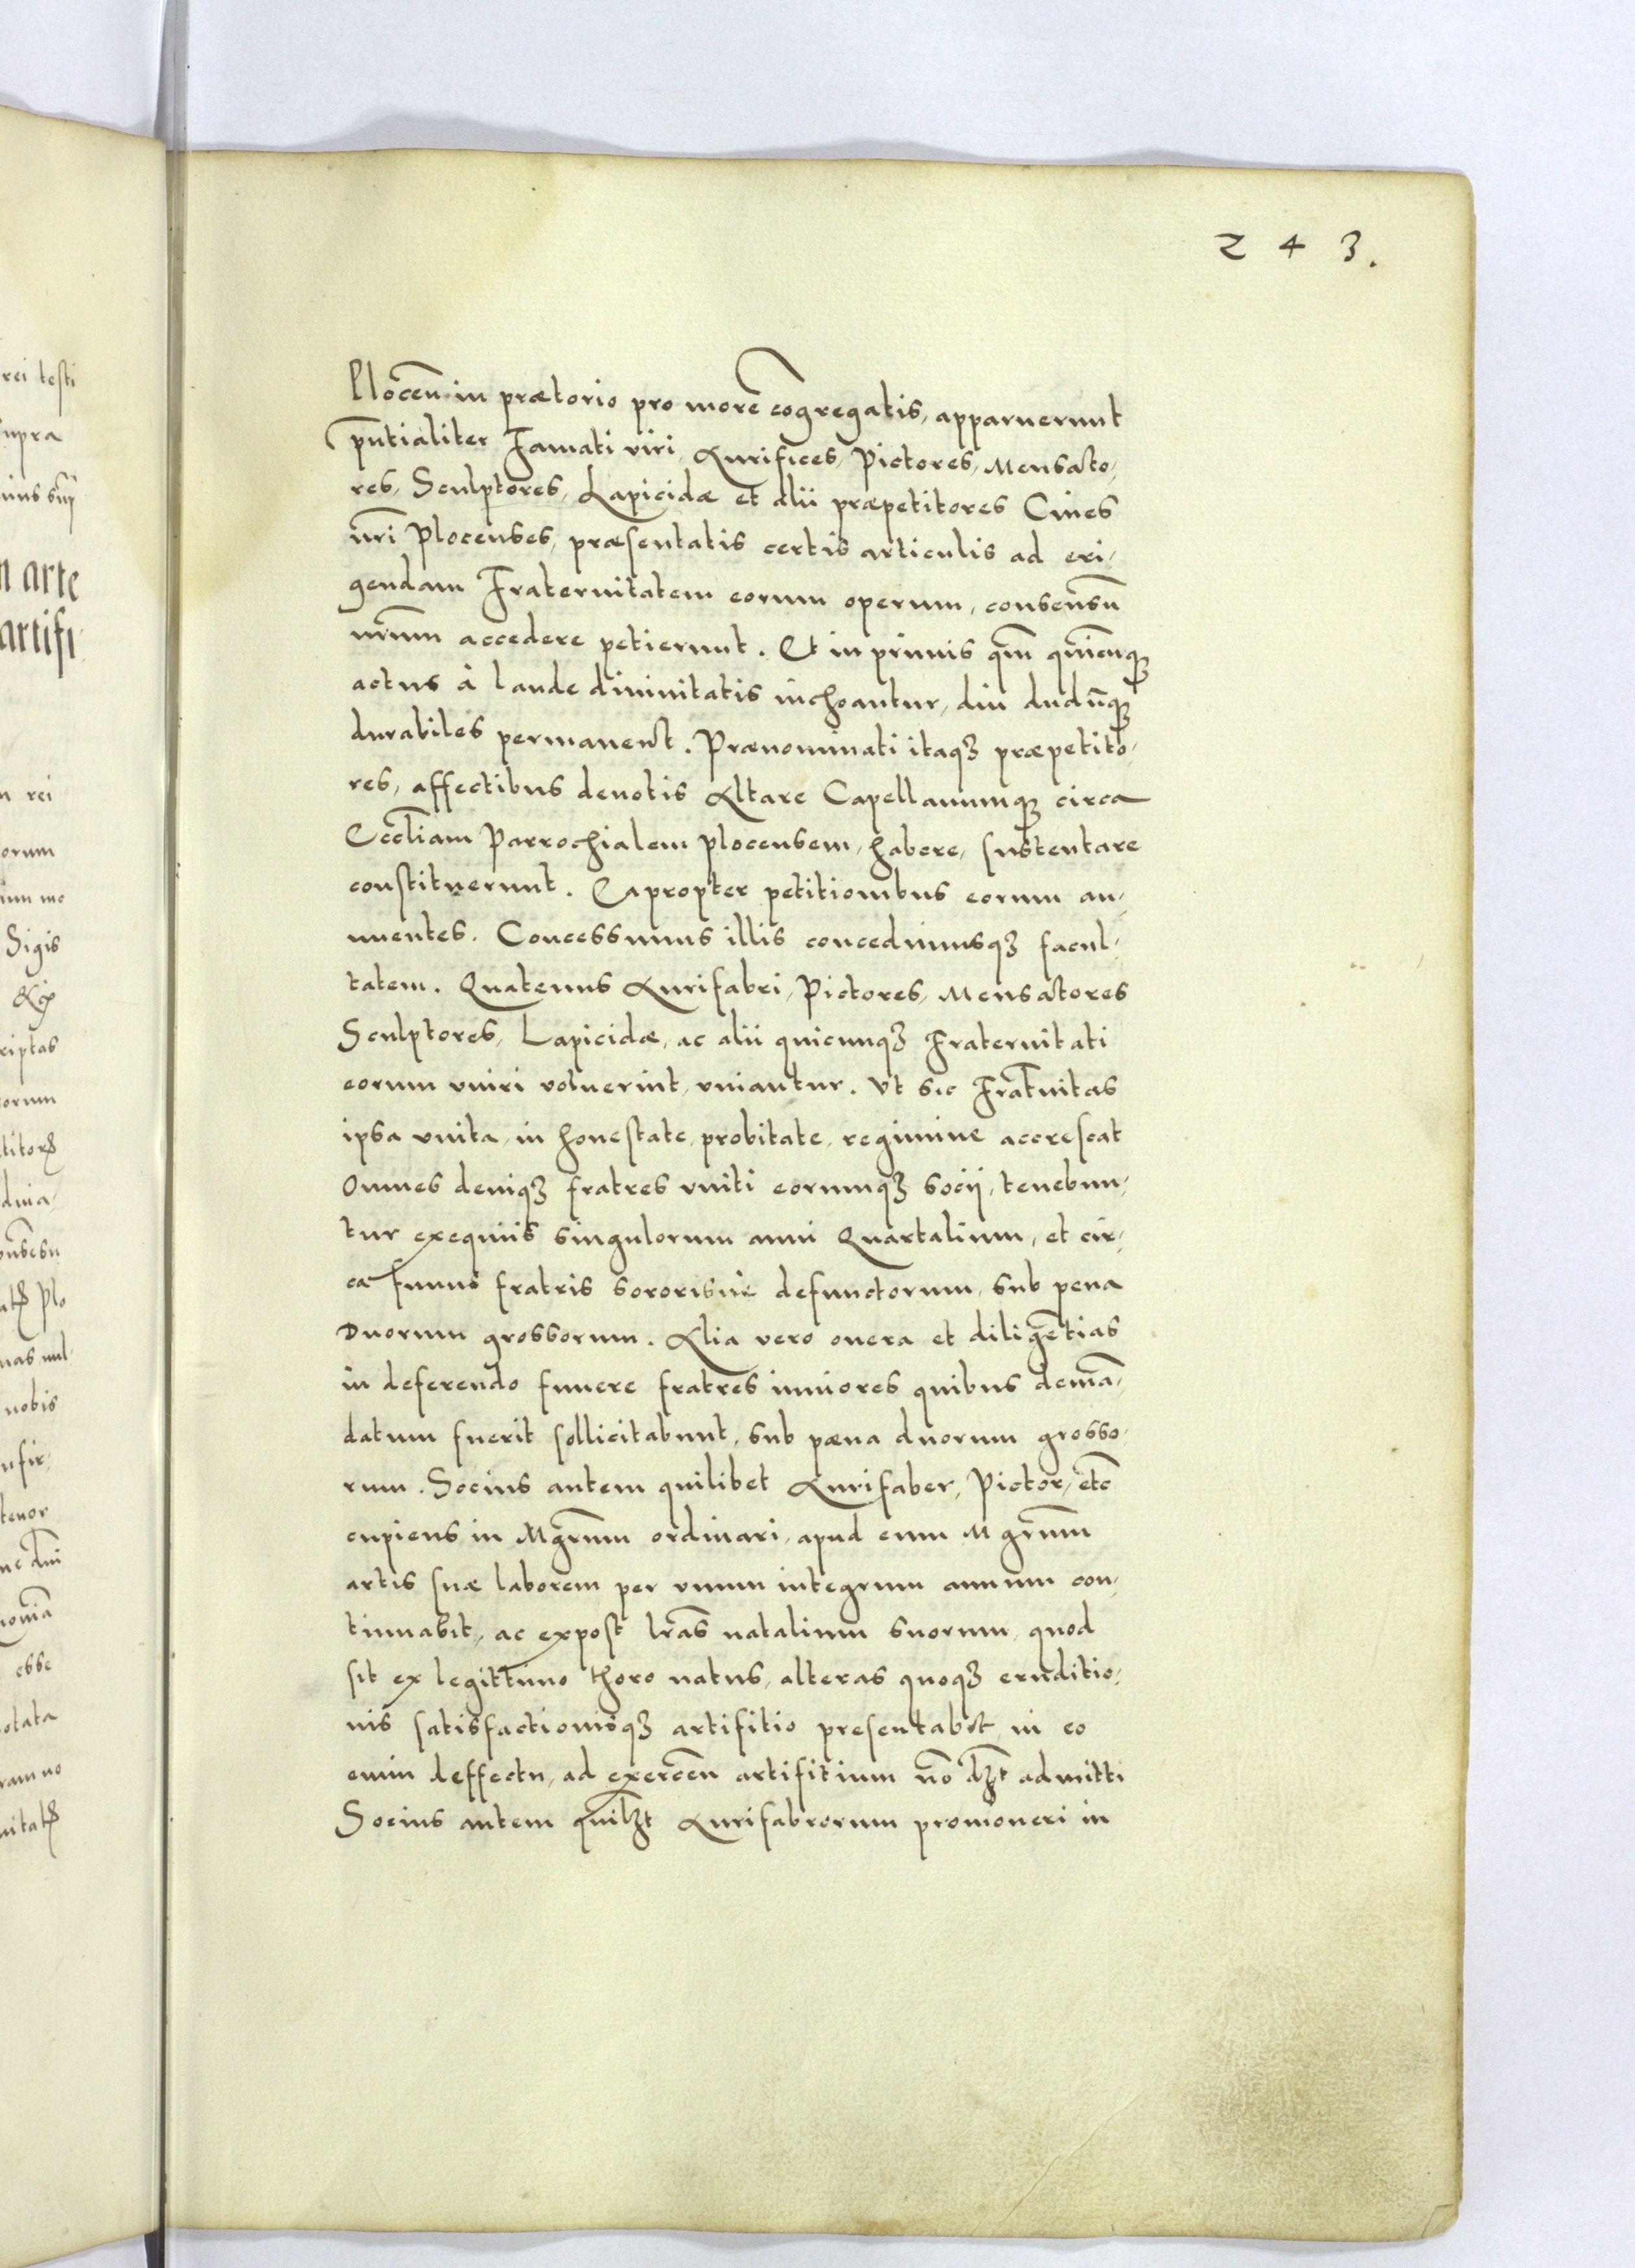 243.
Plocen̄ in prætorio pro more cōgregatis, apparuerunt
pn̄tialiter Famati viri Aurifices, Pictores, Mensato,
res, Sculptores, Lapicidæ et alii præpetitores Ciues
nr̄i Plocenses, præsentatis certis articulis ad eri,
gendam Fraternitatem eorum operum, consensū
nr̄um accedere petierunt. Et in primis qm̄ quicunq;
actus à laude diuinitatis inchoantur, diu dudūq;
durabiles permanent. Prænominati itaq; præpetito,
res, affectibus deuotis Altare Capellanumq; circa
Eccl̄iam Parrochialem plocensem, habere, sustentare
constituerunt. Eapropter petitionibus eorum an,
nuentes. Concessimus illis concedimusq; facul,
tatem. Quatenus Aurifabri, Pictores, Mensatores
Sculptores, Lapicidæ, ac alii quicunq; Fraternitati
eorum vniri voluerint, vniantur. Vt sic Frat̄nitas
ipsa vnita, in honestate, probitate, regimine accrescat
Omnes deniq; fratres vniti eorumq; socij, tenebun,
tur exequiis singulorum anni Quartalium, et cir,
ca funus fratris sororisue defunctorum, sub pena
Duorum grossorum. Alia vero onera et diligētias
in deferendo funere fratres iuniores quibus demā,
datum fuerit sollicitabunt, sub pæna duorum grosso,
rum. Socius autem quilibet Aurifaber, Pictor, etc̄
cupiens in Mgr̄um ordinari, apud eum Mgr̄um
artis suæ laborem per vnum integrum annum con,
tinuabit, ac expost lr̄as natalium suorum, quod
sit ex legittimo thoro natus, alteras quoq; eruditio,
nis satisfactionisq; artifitio presentabit, in eo
enim deffectu, ad exercen̄ artifitium nō dȝt admitti
Socius autem quilȝt Aurifabrorum promoueri in